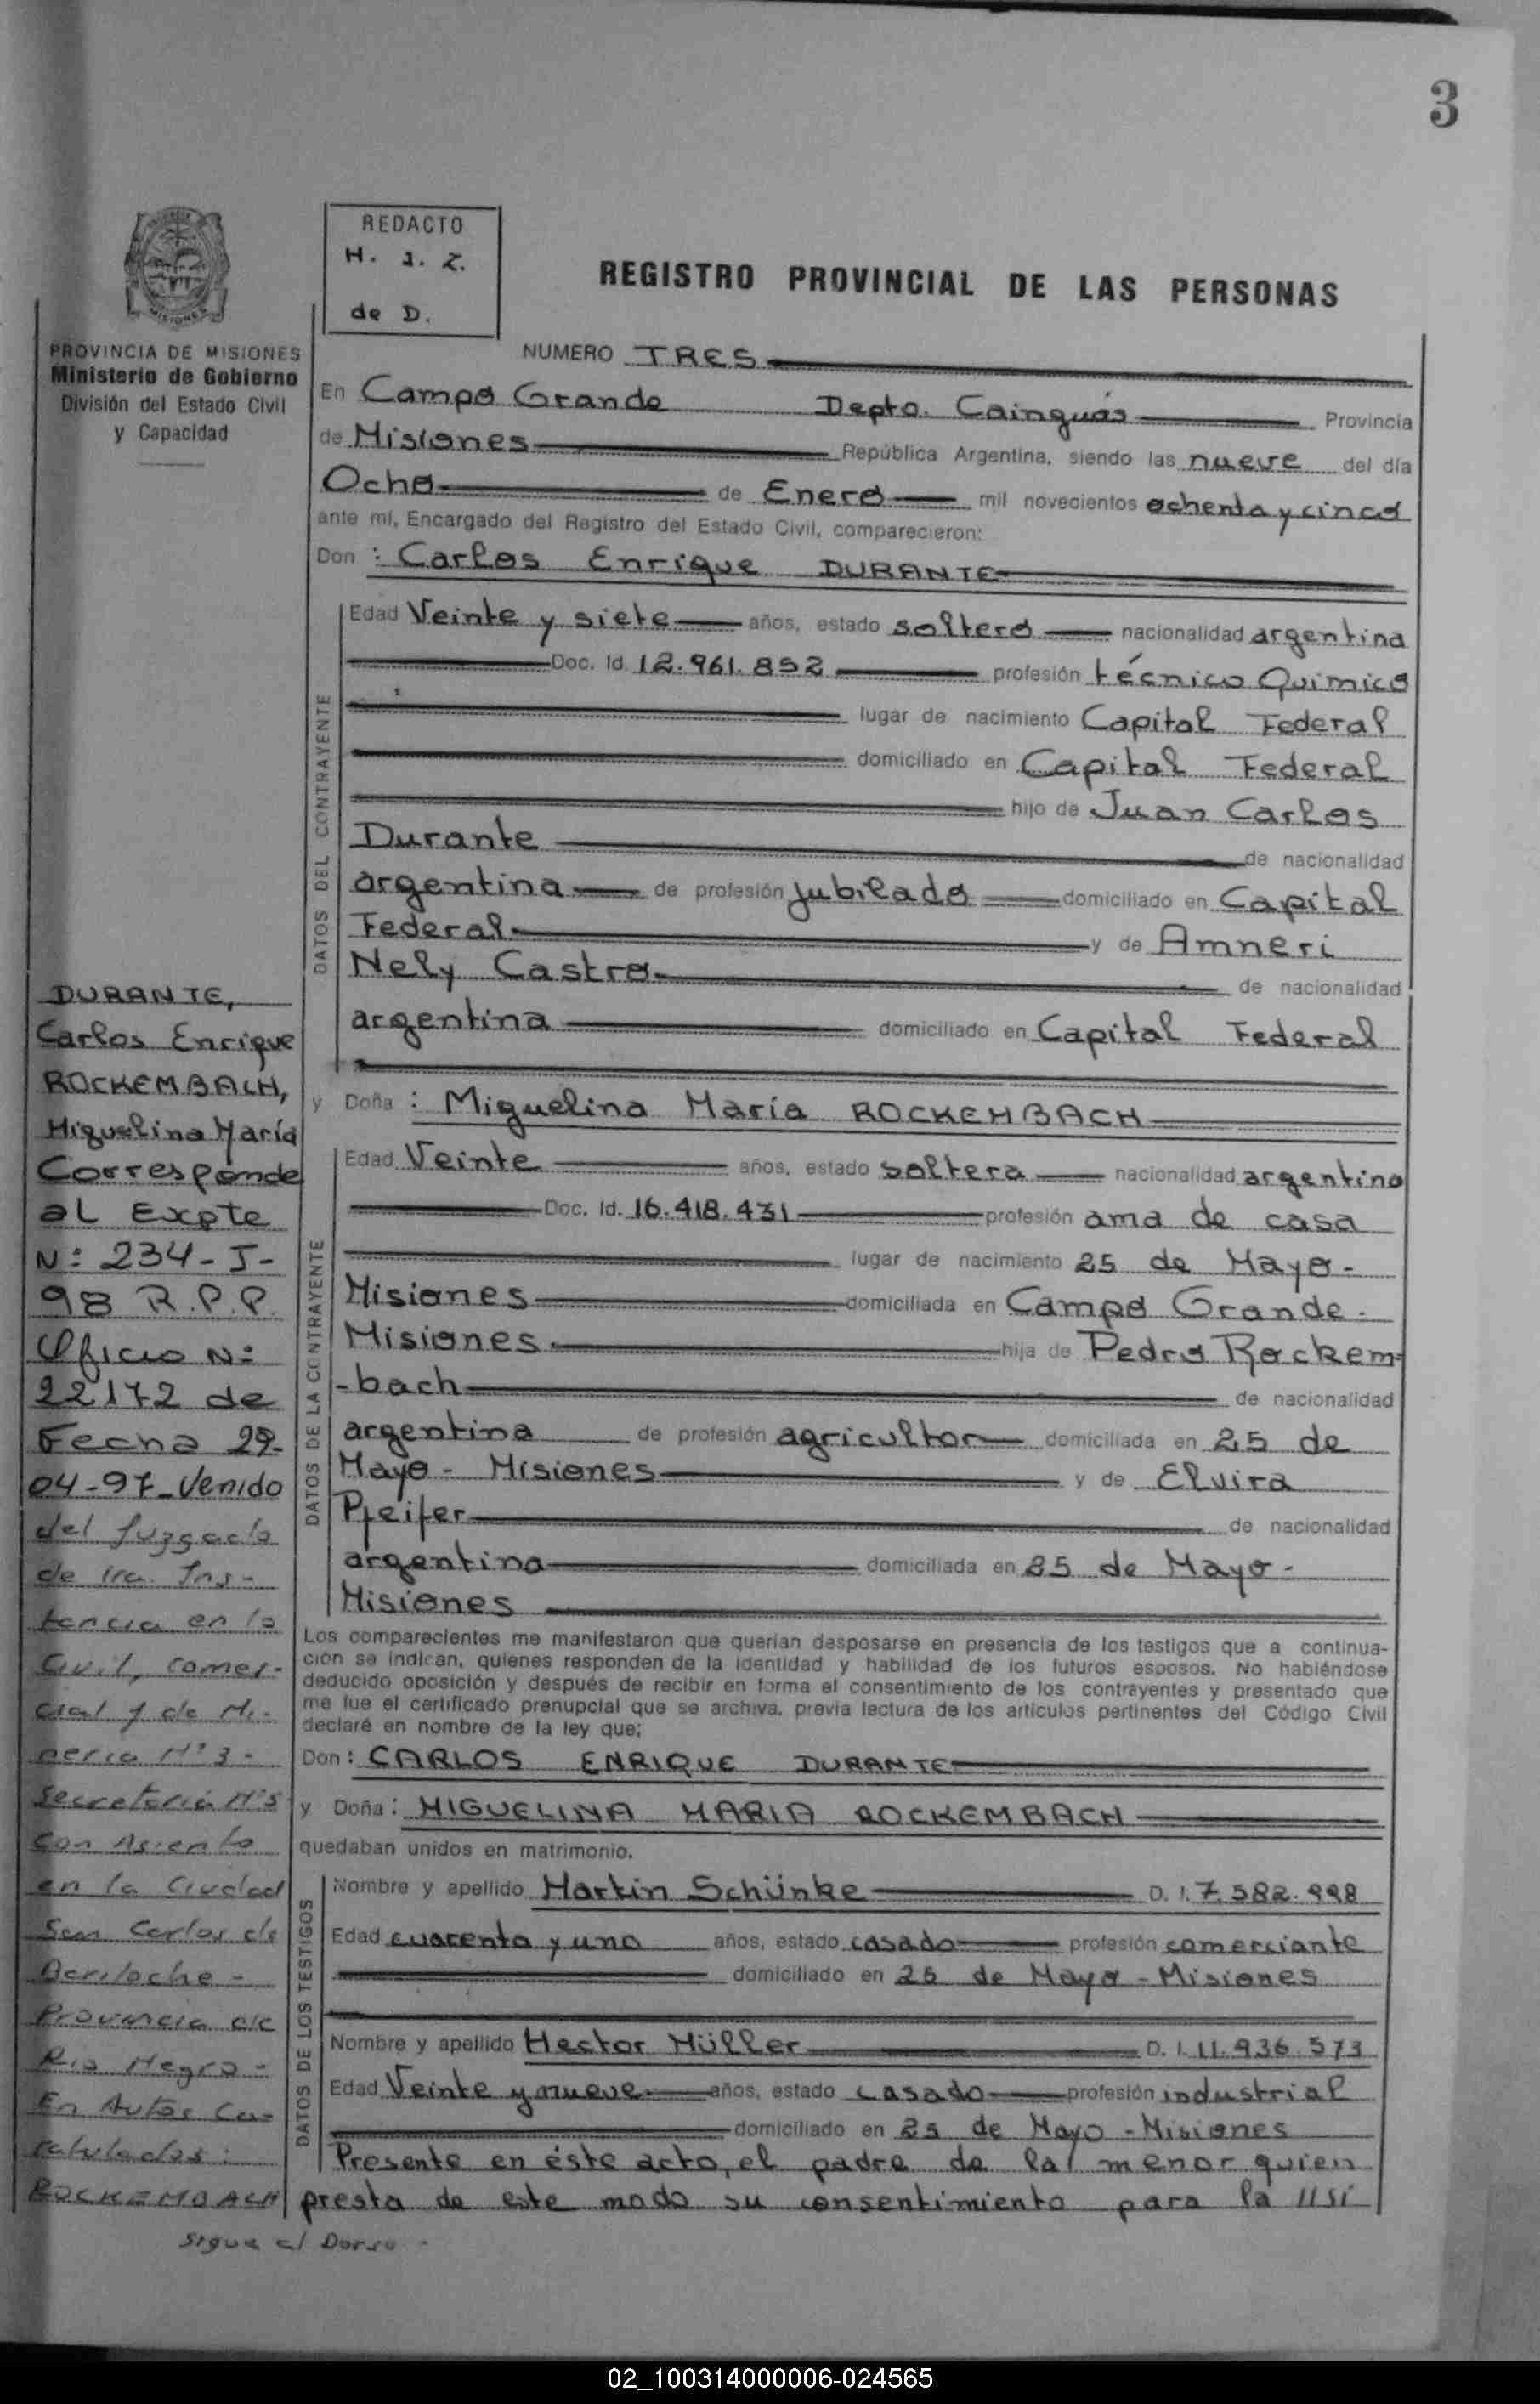 3
REDACTO
H. J. Z.
de D.
REGISTRO PROVINCIAL DE LAS PERSONAS
PROVINCIA DE MISIONES
Ministerio de Gobierno
División del Estado Civil
y Capacidad
NUMERO TRES
En Campo Grande Depto. Cainguás Provincia
de Misiones República Argentina, siendo las nueve del día
Ocho de Enero mil novecientos ochenta y cinco
ante mí, Encargado del Registro del Estado Civil, comparecieron:
Don : Carlos Enrique DURANTE
DATOS DEL CONTRAYENTE
Edad Veinte y siete años, estado soltero nacionalidad argentina
Doc. Id. 12.961.852 profesión técnico Químico
lugar de nacimiento Capital Federal
domiciliado en Capital Federal
hijo de Juan Carlos
Durante de nacionalidad
argentina de profesión jubilado domiciliado en Capital
Federal y de Amneri
Nely Castro de nacionalidad
argentina domiciliado en Capital Federal
y Doña : Miguelina María ROCKEMBACH
DATOS DE LA CONTRAYENTE
Edad Veinte años, estado soltera nacionalidad argentina
Doc. Id. 16.418.431 profesión ama de casa
lugar de nacimiento 25 de Mayo-
Misiones domiciliada en Campo Grande.
Misiones hija de Pedro Rockem-
-bach de nacionalidad
argentina de profesión agricultor domiciliada en 25 de
Mayo - Misiones y de Elvira
Pfeifer de nacionalidad
argentina domiciliada en 25 de Mayo-
Misiones
Los comparecientes me manifestaron que querían desposarse en presencia de los testigos que a continua-
ción se indican, quienes responden de la identidad y habilidad de los futuros esposos. No habiéndose
deducido oposición y después de recibir en forma el consentimiento de los contrayentes y presentado que
me fue el certificado prenupcial que se archiva, previa lectura de los artículos pertinentes del Código Civil
declaré en nombre de la ley que;
Don : CARLOS ENRIQUE DURANTE
y Doña : MIGUELINA MARIA ROCKEMBACH
quedaban unidos en matrimonio.
DATOS DE LOS TESTIGOS
Nombre y apellido Martin Schünke D. I. 7.582.998
Edad cuarenta y uno años, estado casado profesión comerciante
domiciliado en 25 de Mayo - Misiones
Nombre y apellido Hector Müller D. I. 11.936.573
Edad Veinte y nueve años, estado casado profesión industrial
domiciliado en 25 de Mayo - Misiones
Presente en éste acto, el padre de la menor quien
presta de este modo su consentimiento para la
DURANTE,
Carlos Enrique
ROCKEMBACH,
Miguelina María
Corresponde
al Expte
N: 234-J-
98 R.P.P.
Oficio N:
22172 de
Fecha 29-
04-97-Venido
del Juzgado
de 1ra. Ins-
tancia en lo
Civil, comer-
cial y de Mi-
neria Nº3-
Secretaria Nº5
con Asiento
en la Ciudad
San Carlos de
Bariloche -
Provincia de
Rio Negro-
En Autos Ca-
ratulados:
ROCKEMBACH
Sigue al Dorso -
02_100314000006-024565